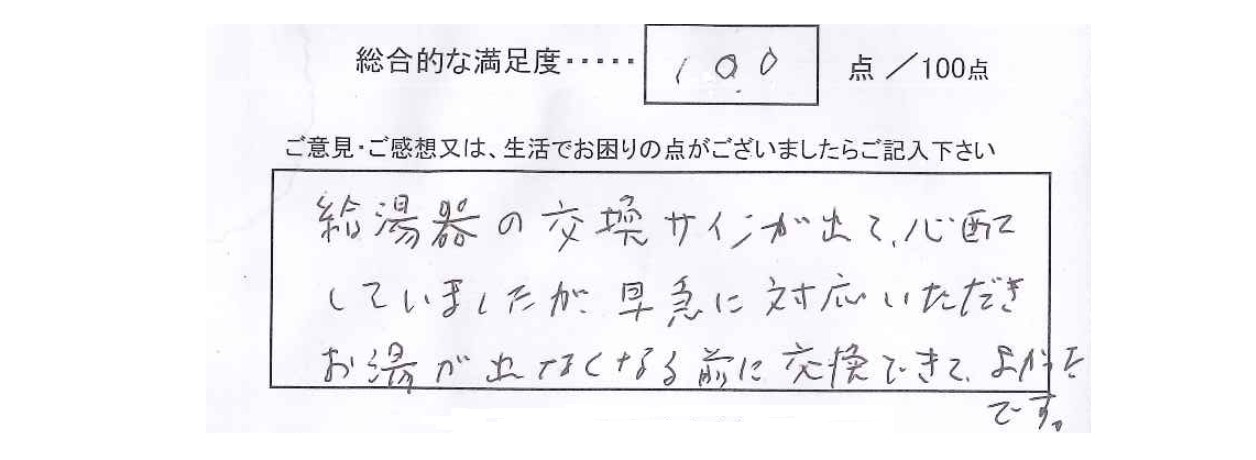 総合的な満足度・・・・・ 100 点 ／100点
ご意見・ご感想又は、生活でお困りの点がございましたらご記入下さい
給湯器の交換サインが出て、心配
していましたが、早急に対応いただき
お湯が出なくなる前に交換できて、よかった
です。